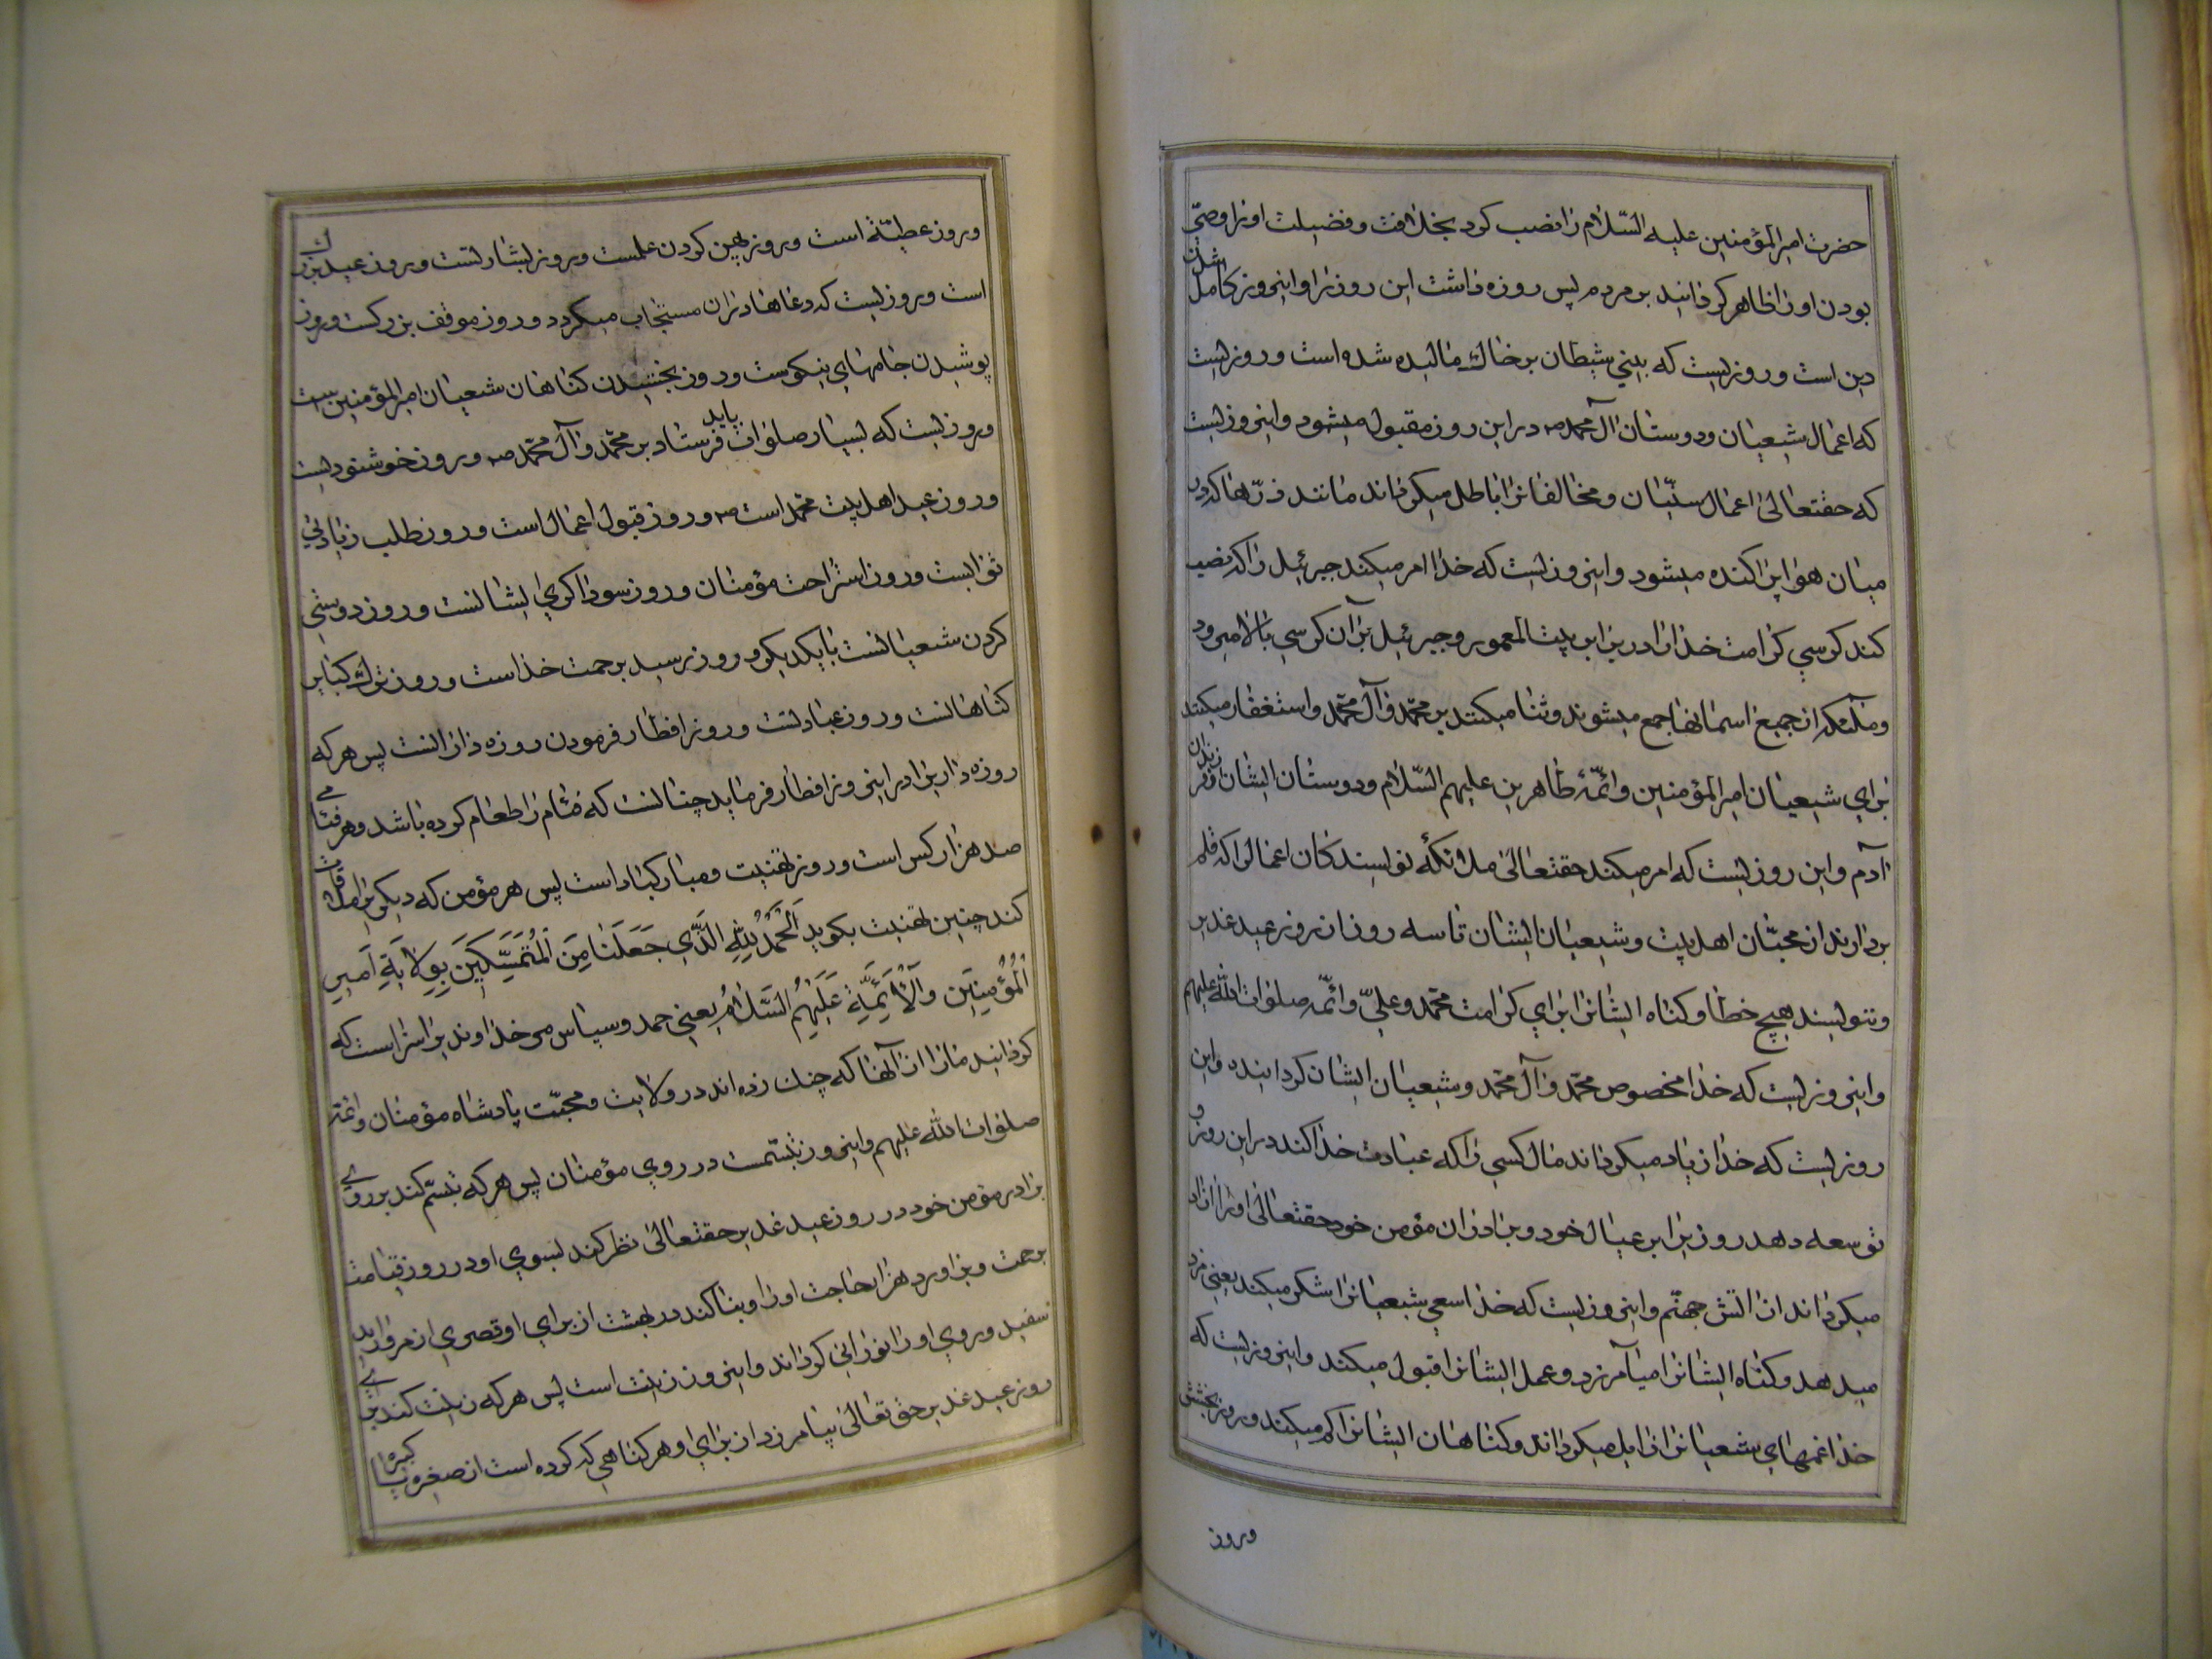 حضرت امیرالمؤمنین علیه السّلام را نصب کرد بخلافت و فضیلت او را وصیّ
بودن او را ظاهر کردانید بر مردم پس روزه داشت این روز را و اینروز کامل شدن
دین است و روزیست که بینی شیطان بر خاك مالیده شده است و روزیست
که اعمال شیعیان و دوستان آل محمد ص در این روز مقبول میشود و اینروزیست
که حقتعالی اعمال سنّیان و مخالفانرا باطل میکرداند مانند ذرّهها که در
میان هوا پراکنده میشود و اینروزیست که خدا امر میکند جبرئیل را که نصب
کند کرسی کرامت خدا را در برابر بیت المعمور و جبرئیل بر آن کرسی بالا میرود
و ملئکه از جمیع اسمانها جمع میشوند و ثنا میکنند بر محمّد و آل محمّد و استغفار میکنند
برای شیعیان امیرالمؤمنین و ائمّه طاهرین علیهم السّلام و دوستان ایشان از فرزندان
آدم و این روزیست که امر میکند حقتعالی ملائکهٔ نویسندکان اعمالرا که قلم
بردارند از محبّان اهل بیت و شیعیان ایشان تا سه روز از روز عید غدیر
و ننویسند هیچ خطا و کناه ایشانرا برای کرامت محمّد و علیّ و ائمّه صلوات الله علیهم
و اینروزیست که خدا مخصوص محمّد و آل محمّد و شیعیان ایشان کردانیده و این
روزیست که خدا زیاد میکرداند مال کسی را که عبادت خدا کند در این روز و
توسعه دهد روز بر عیال خود و برادران مؤمن خود حقتعالی او را ازاد
میکرداند از اتش جهنّم و اینروزیست که خدا سعی شیعیانرا شکر میکند یعنی مزد
میدهد و کناه ایشانرا میآمرزد و عمل ایشانرا قبول میکند و اینروزیست که
خدا غمهای شیعیانرا زایل میکرداند و کناهان ایشانرا کم میکند و روز بخشش
و روز
و روز عطیّة است و روز پهن کردن علمست و روز بشارتست و روز عید بزرك
است و روزیست که دعاها در ان مستجاب میکردد و روز موقف بزرکست و روز
پوشیدن جامهای نیکوست و روز بخشیدن کناهان شیعیان امیرالمؤمنین است
و روزیست که بسیار صلوات باید فرستاد بر محمّد و آل محمّد ص و روز خوشنودیست
و روز عید اهل بیت محمّد است ص و روز قبول اعمال است و روز طلب زیادتی
ثوابست و روز استراحت مؤمنان و روز سوداکری ایشانست و روز دوستی
کردن شیعیانست با یکدیکر و روز رسید برحمت خداست و روز ترك کبایر
کناهانست و روز عبادتست و روز افطار فرمودن روزه دارانست پس هر که
روزه داریرا در اینروز افطار فرماید چنانست که فئام را طعام کرده باشد و هر فئامی
صد هزار کس است و روز تهنیت و مبارکباد است پس هر مؤمن که دیکریرا ملاقات
کند چنین تهنیت بکوید اَلْحَمْدُ لِلّٰهِ الَّذِي جَعَلَنٰا مِنَ الْمُتَمَسِّكِينَ بِوِلٰايَةِ اَمِيرِ
الْمُؤْمِنِينَ وَالْاَئِمَّةِ عَلَيْهِمُ السَّلٰامُ یعنی حمد و سپاس مر خداوندیرا سزاست که
کردانید مارا از آنها که چنك زده اند در ولایت و محبّت پادشاه مؤمنان و ائمّه
صلوات الله علیهم و اینروز تبسّمست در روی مؤمنان پس هر که تبسّم کند بر روی
برادر مؤمن خود در روز عید غدیر حقتعالی نظر کند بسوی او در روز قیامت
برحمت و براورد هزار حاجت او را و بنا کند در بهشت از برای او قصری از مروارید
سفید و روی او را نورانی کرداند و اینروز زینت است پس هر که زینت کند برای
روز عید غدیر حق تعالی بیامرزد از برای او هر کناهی که کرده است از صغیره یا کبیره